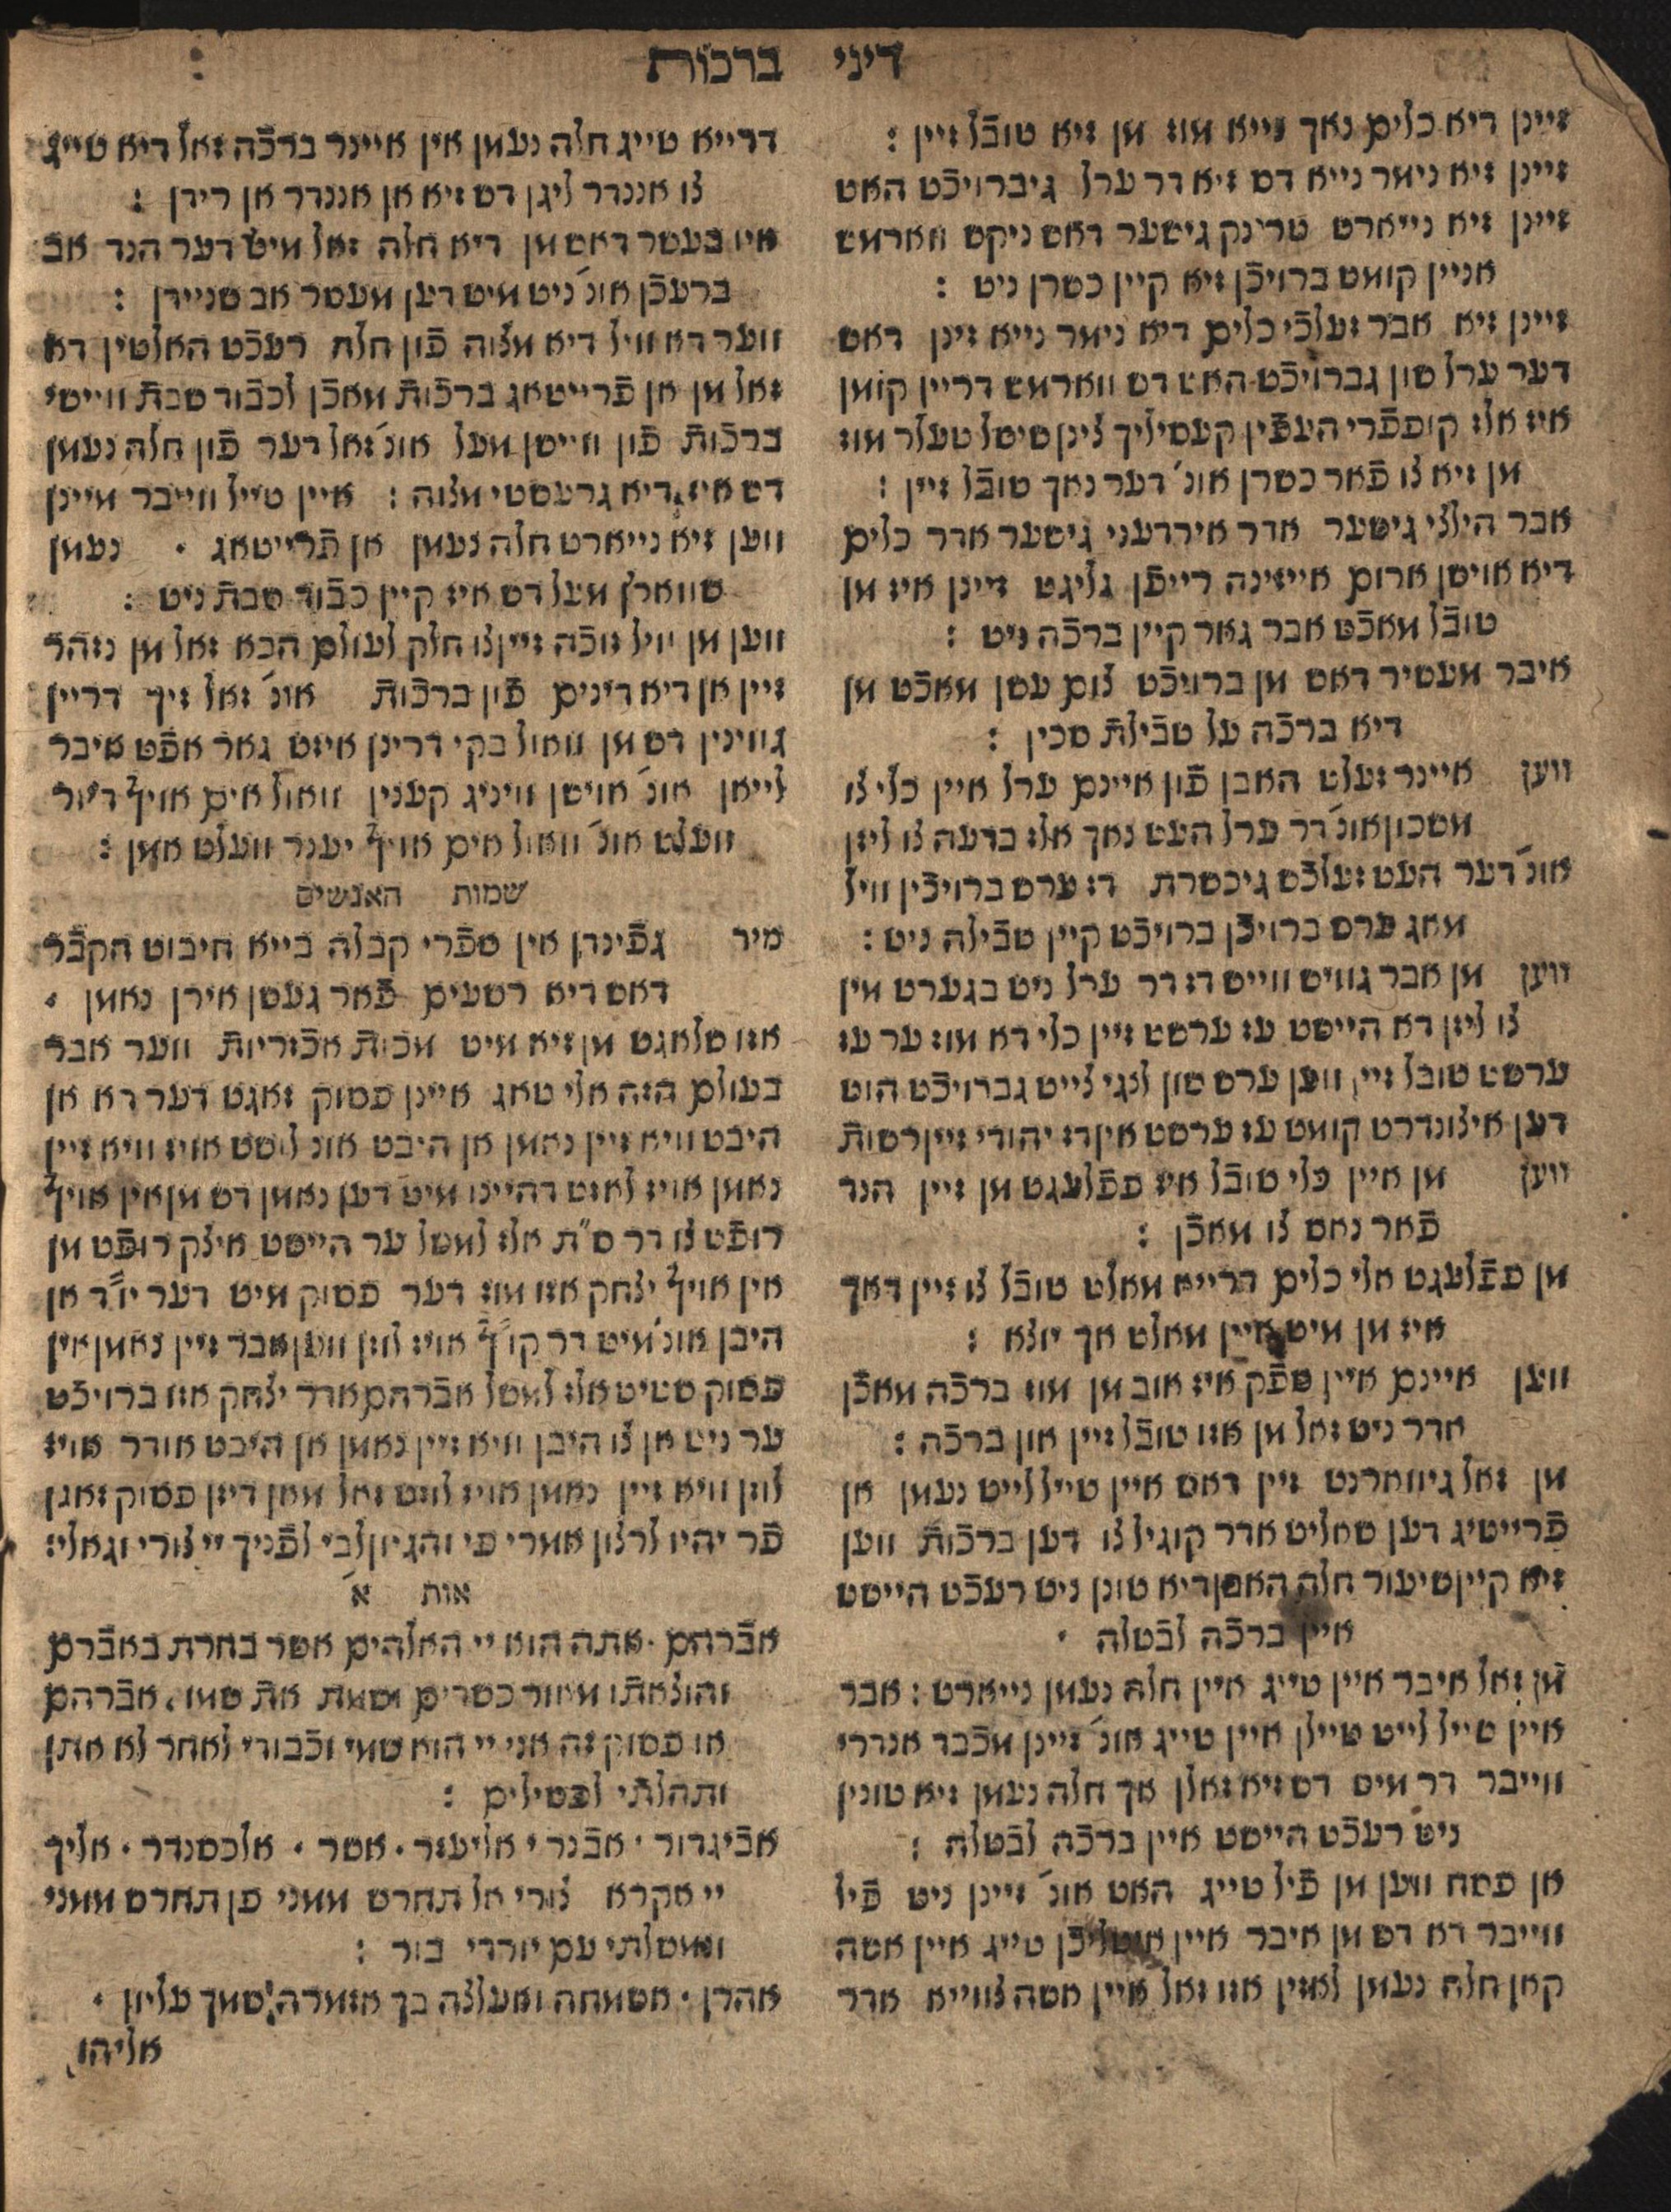 דיני ברכות
זיינן דיא כלים נאך נייא מוז מן זיא טובֿל זיין :
זיינן זיא נימר נייא דש זיא דר ערל גיברויכֿט האט
זיינן זיא נייארט טרינק גישער דאש ניקש ווארמש
אניין קומט ברויכֿן זיא קיין כשרן ניט :
זיינן זיא אבר זעלכֿי כלים דיא נימר נייא זינן דאש
דער ערל שון גברויכֿט האט דש ווארמש דריין קומן
איז אלז קופפֿרי העפֿין קעסיליך צינן שיסל טעלר מוז
מן זיא צו פֿאר כשרן אונ' דער נאך טובֿל זיין :
אבר הילצי גישער אדר אירדעני גישער אדר כלים
דיא אויסן ארום אייזינה רייפֿן גליגט זיינן איז מן
טובֿל מאכֿט אבר גאר קיין ברכֿה ניט :
איבר מעסיר דאש מן ברויכֿט צום עסן מאכֿט מן
דיא ברכֿה על טבֿילת סכין :
ווען איינר זעלט האבן פֿון איינם ערל איין כלי צו
משכון אונ' דר ערל העט נאך אלז בדעה צו ליזן
אונ' דער העט זעלכֿס גיכשרת דז ערס ברויכֿין וויל
מאג ערס ברויכֿן ברויכֿט קיין טבֿילה ניט :
ווען מן אבר גוויש ווייש דז דר ערל ניט בגערט מין
צו ליזן דא הייסט עז ערשט זיין כלי דא מוז ער עז
ערשט טובל זיין ווען ערס שון לנגי צייט גברויכֿט הוט
דען איצונדרט קומט עז ערשט אין דז יהודי זיין רשות
ווען מן איין כלי טובֿל איז פפֿלעגט מן זיין הנד
פֿאר נאס צו מאכֿן :
מן פפֿלעגט אלי כלים דרייא מאלט טובֿל צו זיין דאך
איז מן מיט איין מאלט אך יוצא :
ווען איינם איין ספֿק איז אוב מן מוז ברכֿה מאכֿן
אדר ניט זאל מן אזו טובֿל זיין און ברכֿה :
מן זאל גיווארנט זיין דאס איין טייל לייט נעמן אן
פֿרייטיג דען טאליט אדר קוגיל צו דען ברכֿות ווען
זיא קיין שיעור חלה האבן דיא טונן ניט רעכֿט הייסט
איין ברכֿה לבֿטלה .
מן זאל איבר איין טייג איין חלה נעמן נייארט : אבר
איין טייל לייט טיילן איין טייג אונ' זיינן מכֿבד אנדרי
ווייבר דר מיט דש זיא זאלן אך חלה נעמן זיא טונין
ניט רעכֿט הייסט איין ברכֿה לבֿטלה :
אן פסח ווען מן פֿיל טייג האט אונ' זיינן ניט פֿיל
ווייבר דא דש מן איבר איין טייג איין אשה
קאן חלה נעמן לאזין אזו זאל איין אשה צווייא אדר
דרייא טייג חלה נעמן אין איינר ברכֿה זאל דיא טייג
צו אננדר ליגן דש זיא אן אננדר אן רירן :
איז בעסר דאש מן דיא חלה זאל מיט דער הנד אב
ברעכֿן אונ' ניט מיט דען מעסר אב שניידן :
ווער דא וויל דיא מצוה פֿון חלה רעכֿט האלטין דא
זאל מן אן פֿרייטאג ברכֿות מאכֿן לכבֿוד שבת ווייסי
ברכֿות פֿון ווייסן מעל אונ' זאל דער פֿון חלה נעמן
דש איז דיא גרעסטי מצוה : איין טייל ווייבר מיינן
ווען זיא נייארט חלה נעמן אן פֿרייטאג . נעמן
שווארץ מעל דש איז קיין כבֿוד שבת ניט :
ווען מן וויל זוכֿה זיין צו חלק לעולם הבא זאל מן נזהר
זיין אן דיא דינים פֿון ברכֿות אונ' זאל זיך דריין
גווינין דש מן וואול בקי דרינן איזט גאר אפֿט איבר
לייאן אונ' אויסן וויניג קענין וואול אים אויף דיזר
וועלט אונ' וואול אים אויף יענר וועלט אמן :
שמות האנשים
מיר גפֿינדן אין ספֿרי קבלה בייא חיבוט הקבֿר
דאש דיא רשעים פֿאר געסן אירן נאמן .
אזו שלאגט מן זיא מיט מכות אכזריות ווער אבר
בעולם הזה אלי טאג איינן פסוק זאגט דער דא אן
היבט וויא זיין נאמן אן היבט אונ' לוסט אויז וויא זיין
נאמן אויז לאזט דהיינו מיט דען נאמן דש מן אין אויף
רופֿט צו דר ס״ת אלז למשל ער הייסט איצק רופֿט מן
אין אויף יצחק אזו מוז דער פסוק מיט דער יו״ד אן
היבן אונ' מיט דר קו״ף אויז לוזן ווען אבר זיין נאמן אין
פסוק שטיט אלז למשל אבֿרהם אדר יצחק אזו ברויכֿט
ער ניט אן צו היבן וויא זיין נאמן אן היבט אודר אויז
לוזן וויא זיין נאמן אויז לוזט זאל מאן דיזן פסוק זאגן
פֿר יהיו לרצון אמרי פי והגיון לבי לפֿניך יי צורי וגואלי:
אות א'
אבֿרהם . אתה הוא יי האלהים אשר בחרת באבֿרם
והוצאתו מאור כשדים ושמת את שמו . אבֿרהם
או פסוק זה אני יי הוא שמי וכֿבודי לאחר לא אתן
ותהלתי לפסילים :
אבֿיגדור . אבֿנר . אליעזר . אשר . אלכסנדר . אליך
יי אקרא צורי אל תחרש ממני פן תחרש ממני
ונמשלתי עם יורדי בור :
אהרן . אשמחה ואעלצה בך אזמרה שמך עליון .
אליהו